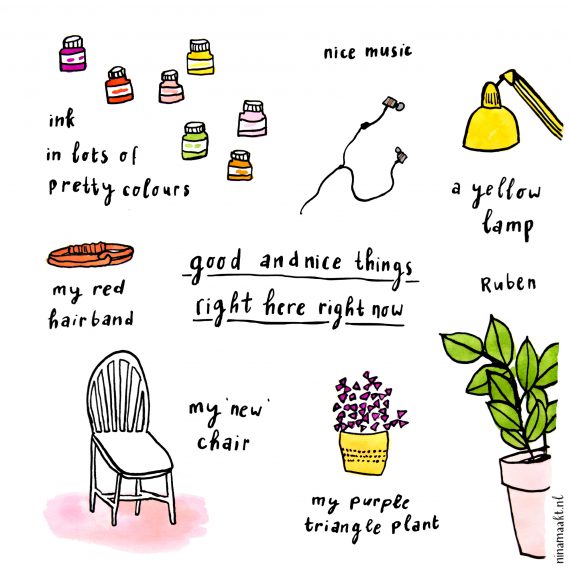 nice music
ink
in lots of
pretty colours
a yellow
lamp
my red
hairband
good and nice things
right here right now
Ruben
my 'new'
chair
my purple
triangle plant
ninamaakt.nl